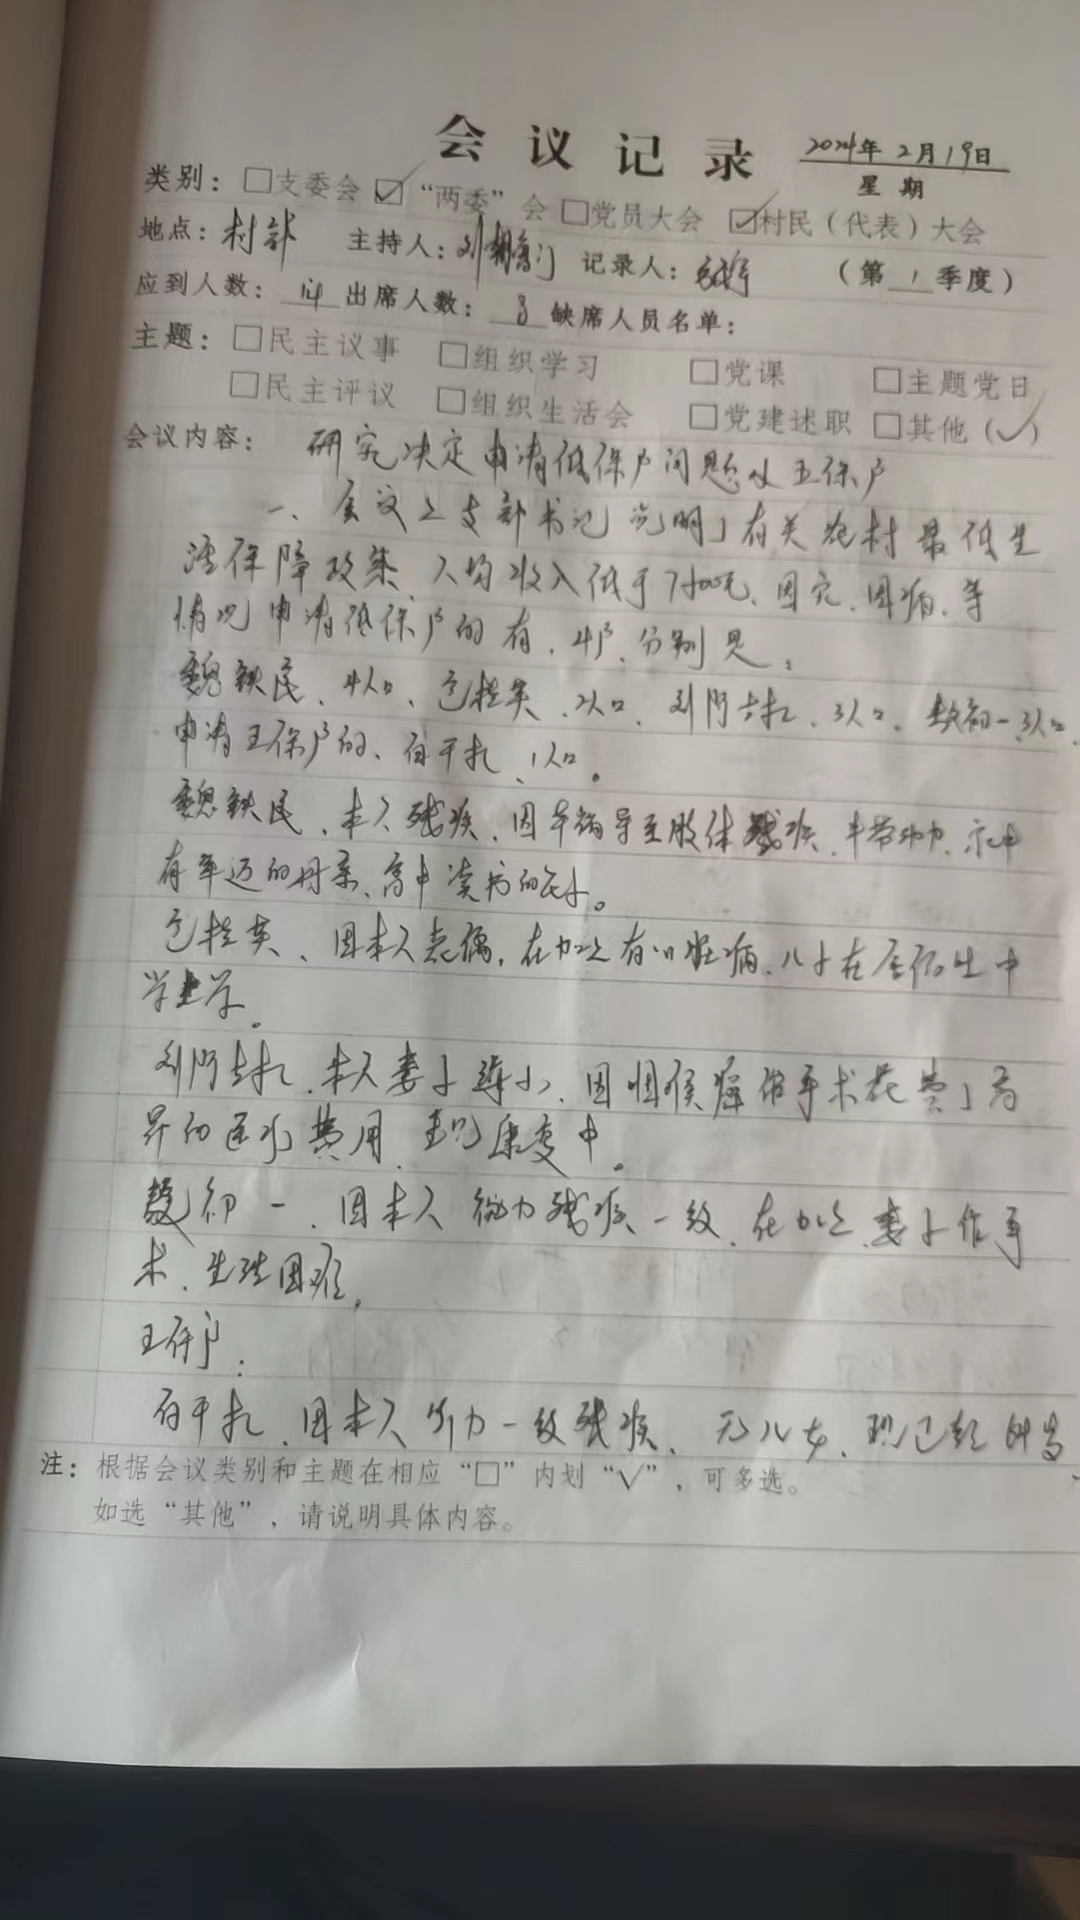 会议记录 2024年2月19日
星期
类别：□支委会 ☑“两委”会 □党员大会 ☑村民（代表）大会
地点：村部 主持人：刘 记录人： （第1季度）
应到人数：14 出席人数：8 缺席人员名单：
主题：□民主议事 □组织学习 □党课 □主题党日
□民主评议 □组织生活会 □党建述职 □其他（✓）
会议内容：研究决定申请低保户问题及五保户
一、会议上支部书记说明了有关农村最低生
活保障政策、人均收入低于 元、因灾、因病、等
情况申请低保户的有、4户、分别是：
魏铁民、4人口、包桂英、2人口、刘阿古扎、3人口、初一、3人口、
申请五保户的、白干扎、1人口。
魏铁民、本人残疾、因车祸导至肢体残疾、半劳动力、家中
有年迈的母亲、高中读书的孩子。
包桂英、因本人丧偶、在加之有心脏病、儿子在 中
学上学。
刘阿古扎、本人妻子 、因咽喉癌做手术花费了高
昂的医疗费用、 康复中。
初一、因本人 力残疾一级、在加之妻子作手
术、生活困难。
五保户：
白干扎、因本人听力一级残疾、无儿女、现已
注：根据会议类别和主题在相应“□”内划“√”，可多选。
如选“其他”，请说明具体内容。